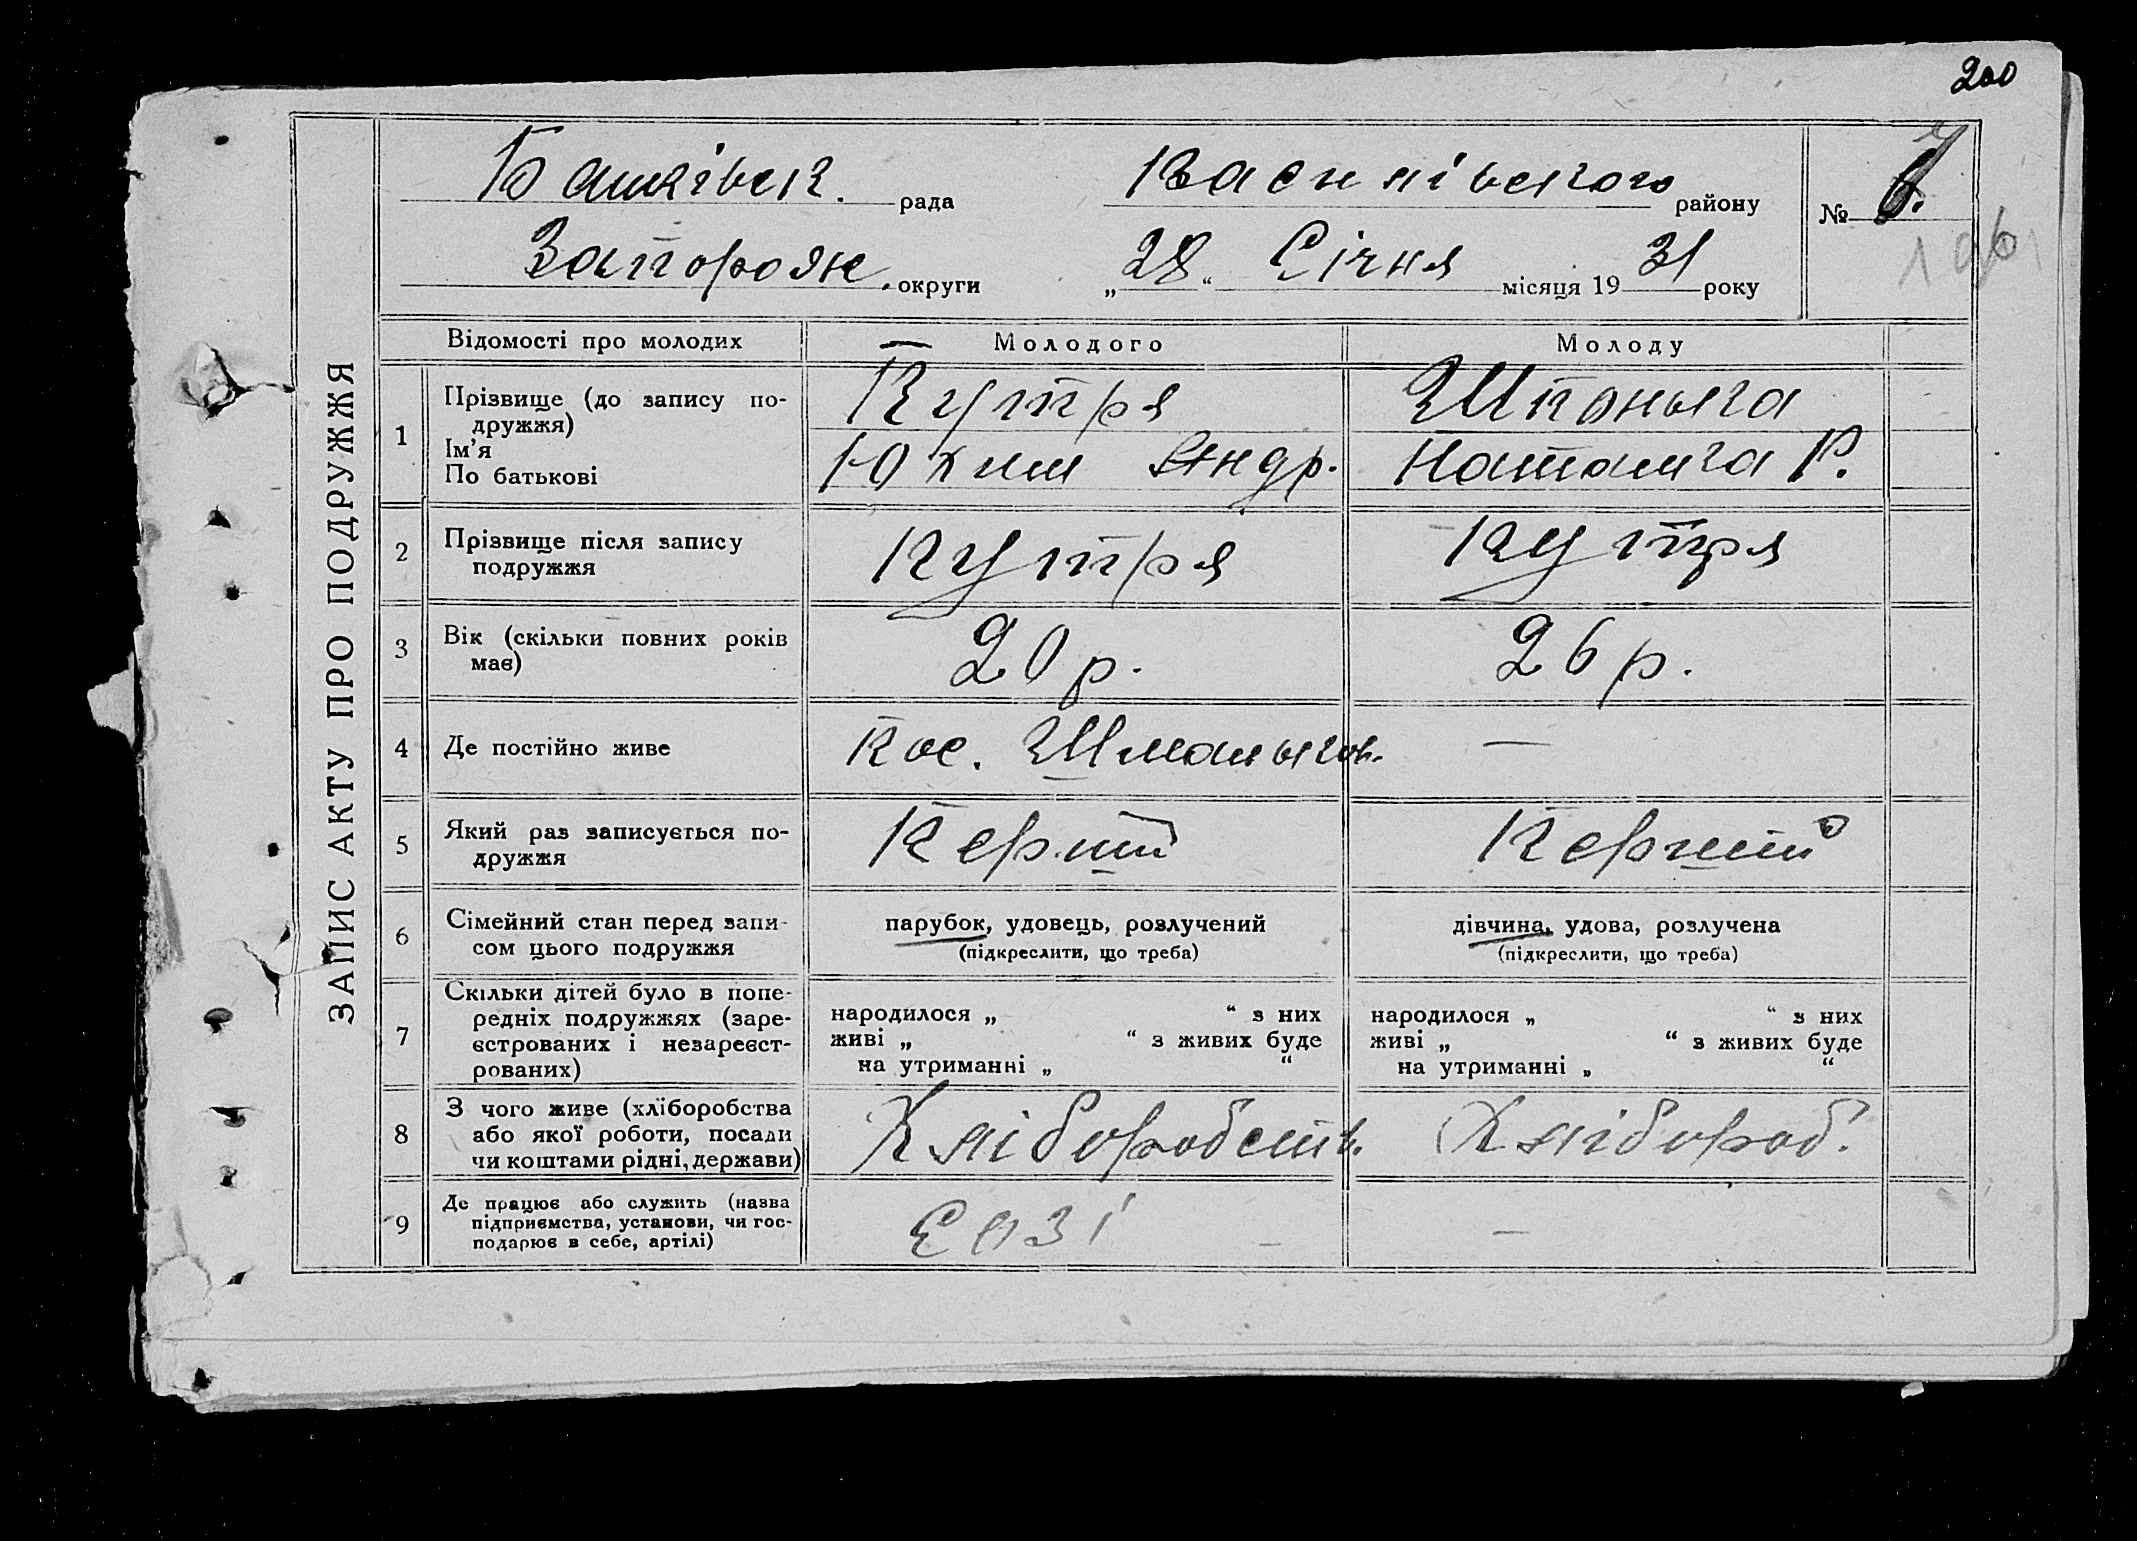 200
Башківськ. рада Василівського району № 6.
Запорож. округи „28“ Січня місяця 1931 року
ЗАПИС АКТУ ПРО ПОДРУЖЖЯ
Відомості про молодих Молодого Молоду
1 Прізвище (до запису по-
дружжя) Кутря Шпоньга
Ім'я Юхим Андр. Наталига Р.
По батькові
2 Прізвище після запису
подружжя Кутря Кутря
3 Вік (скільки повних років
має) 20 р. 26 р.
4 Де постійно живе пос. —
5 Який раз записується по-
дружжя Перший Перший
6 Сімейний стан перед запи-
сом цього подружжя
парубок, удовець, розлучений дівчина, удова, розлучена
(підкреслити, що треба) (підкреслити, що треба)
7 Скільки дітей було в попе-
редніх подружжях (заре-
єстрованих і незареєст-
рованих)
народилося „ “ з них народилося „ “ з них
живі „ “ з живих буде живі „ “ з живих буде
на утриманні „ “ на утриманні „ “
8 З чого живе (хліборобства
або якої роботи, посади
чи коштами рідні, держави)
Хліборобств. Хлібороб.
9 Де працює або служить (назва
підприємства, установи, чи гос-
подарює в себе, артілі)
— —